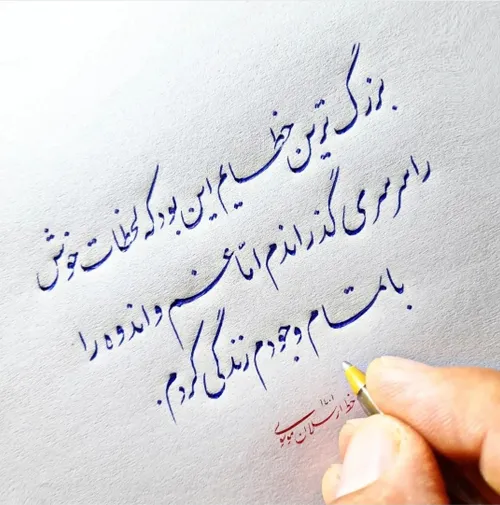 بزرگ ترین خطایم این بود که لحظات خوش
را سرسری گذراندم اما غم و اندوه را
با تمام وجودم زندگی کردم.
خط ارسلان موسوی